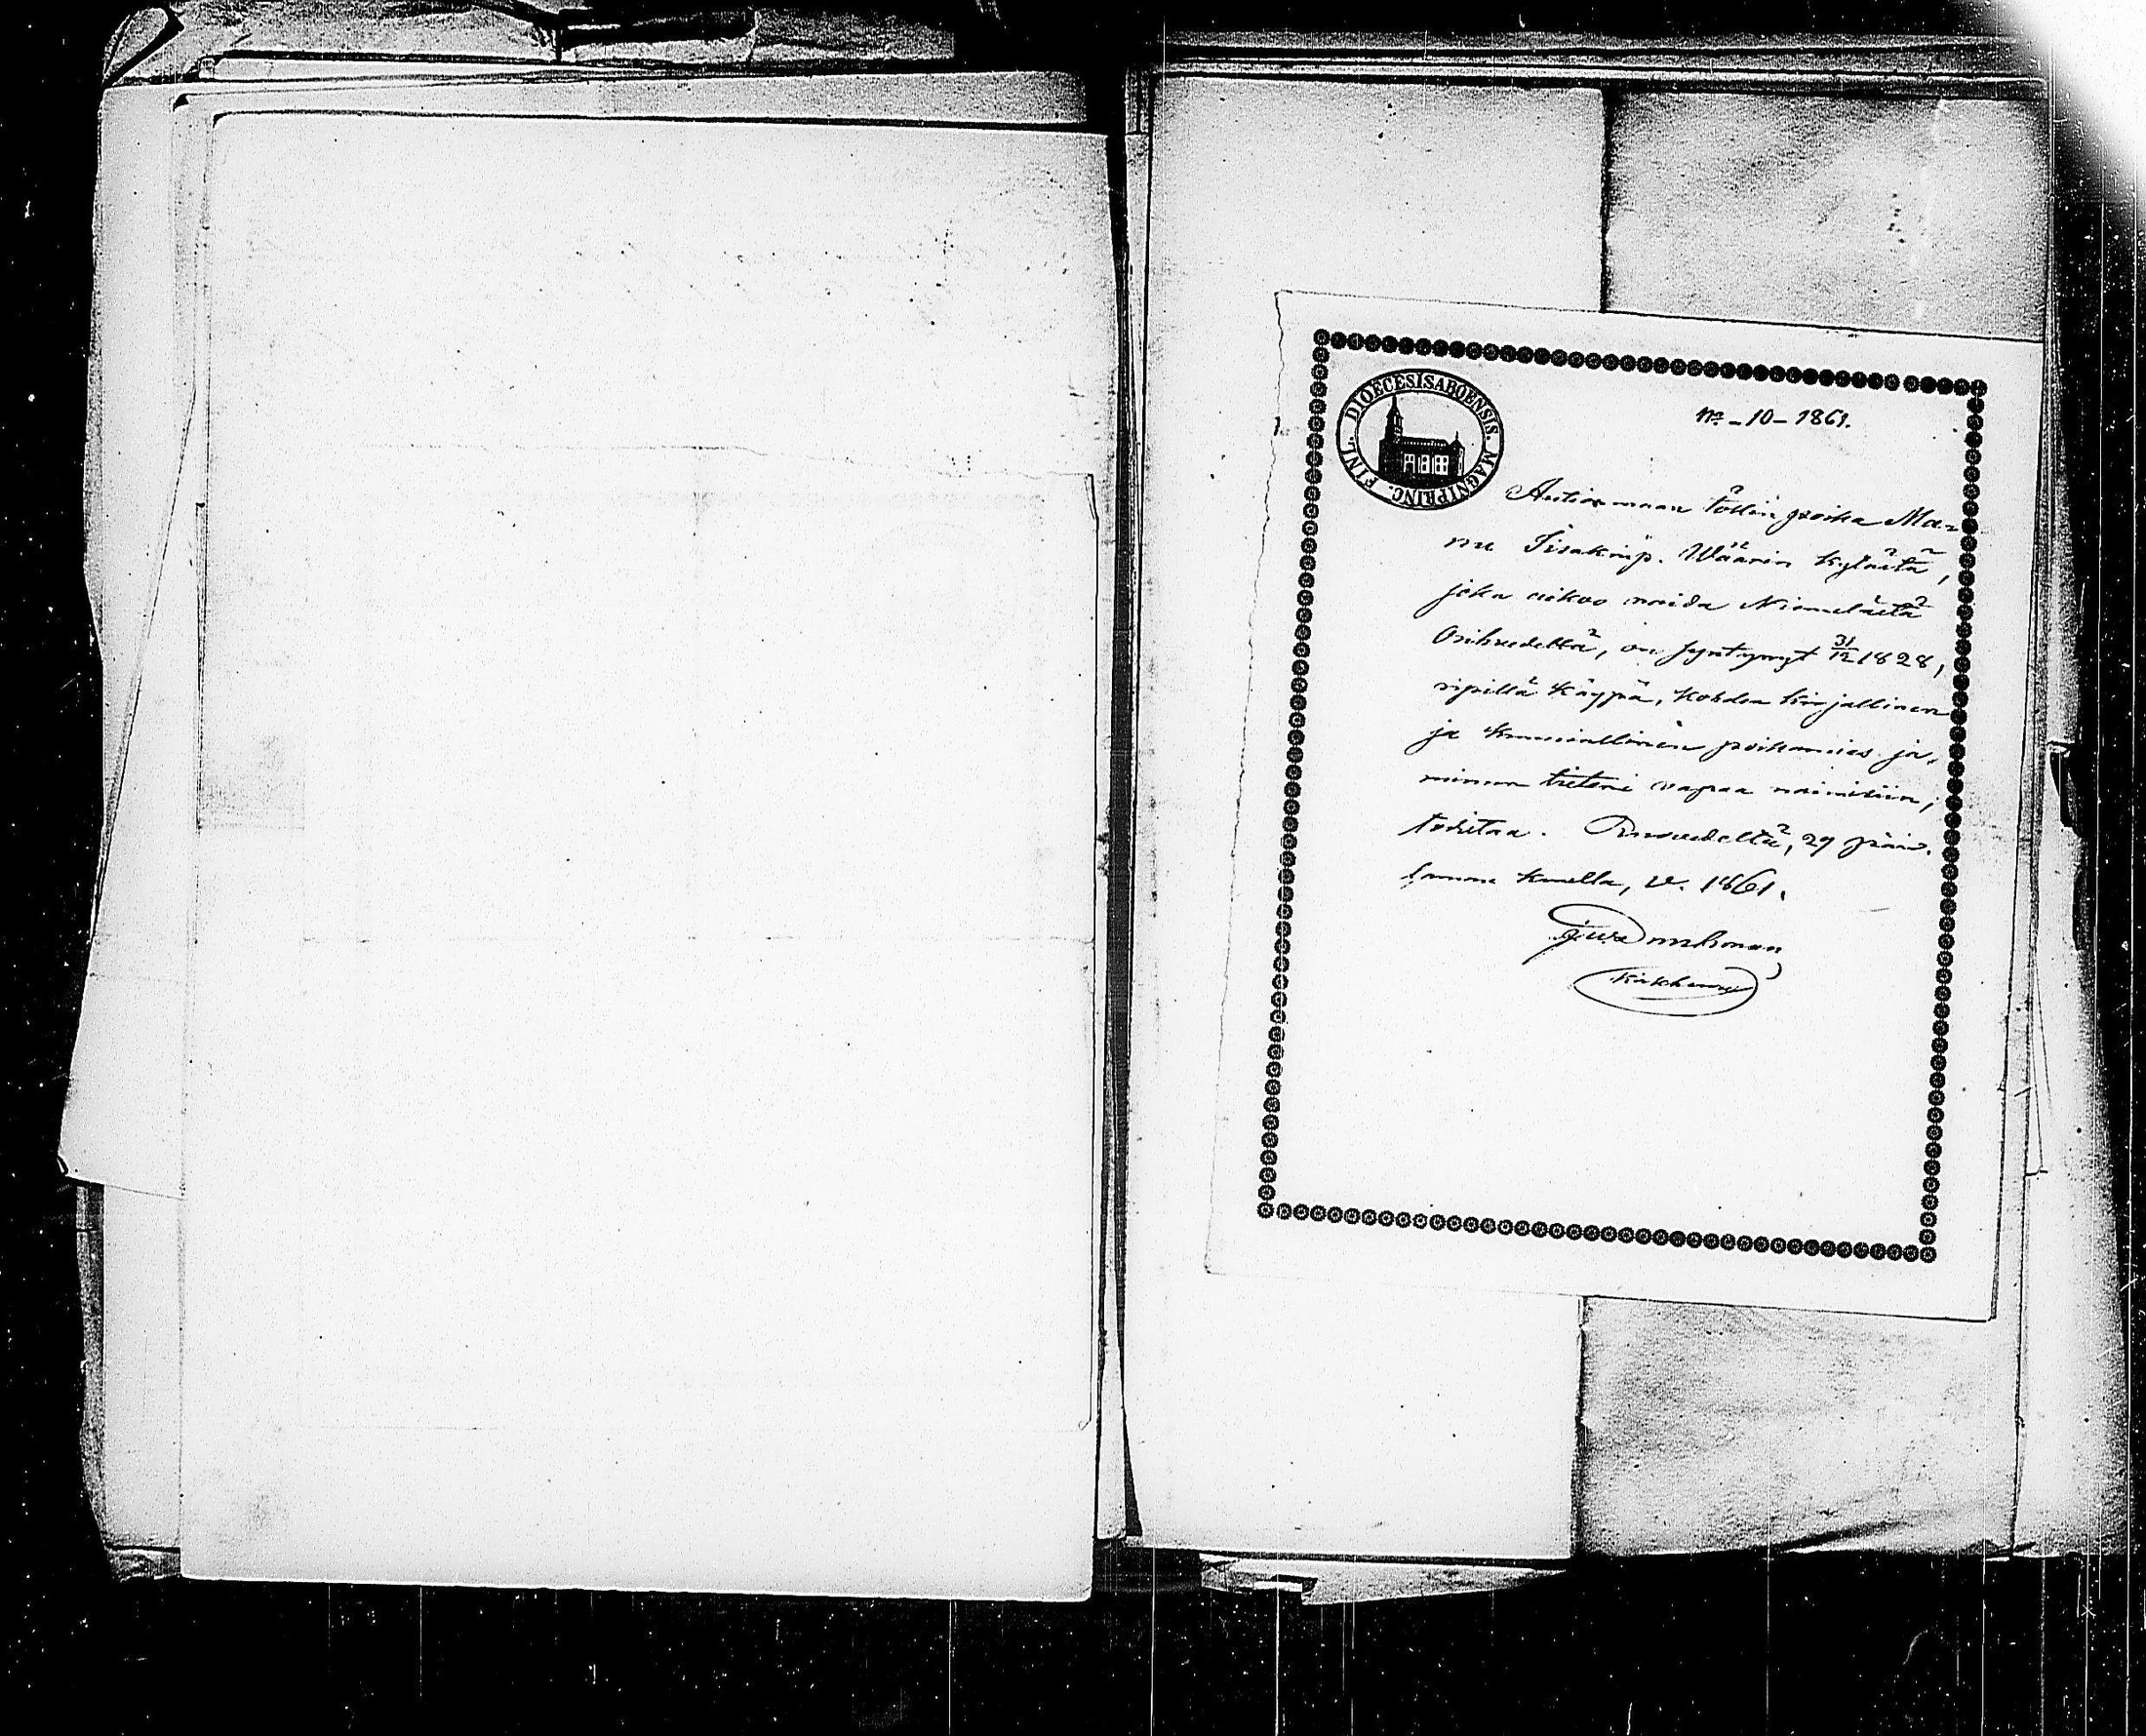 DIOECESIS ABOENSIS. MAGNI PRINC. FINL.
No. - 10 - 1861.
töllin poika Ma-
nu Iisakinp. Wäärin kylästä,
joka aikoo naida Niemelästä
Orihvedeltä, on syntynyt 31/12 1828,
ripillä käypä, kohden kirjallinen
ja kunniallinen poikamies ja,
minun tieteni vapaa naimisiin;
todistaa. Ruovedeltä, 29 päiv.
kuulla, v. 1861.